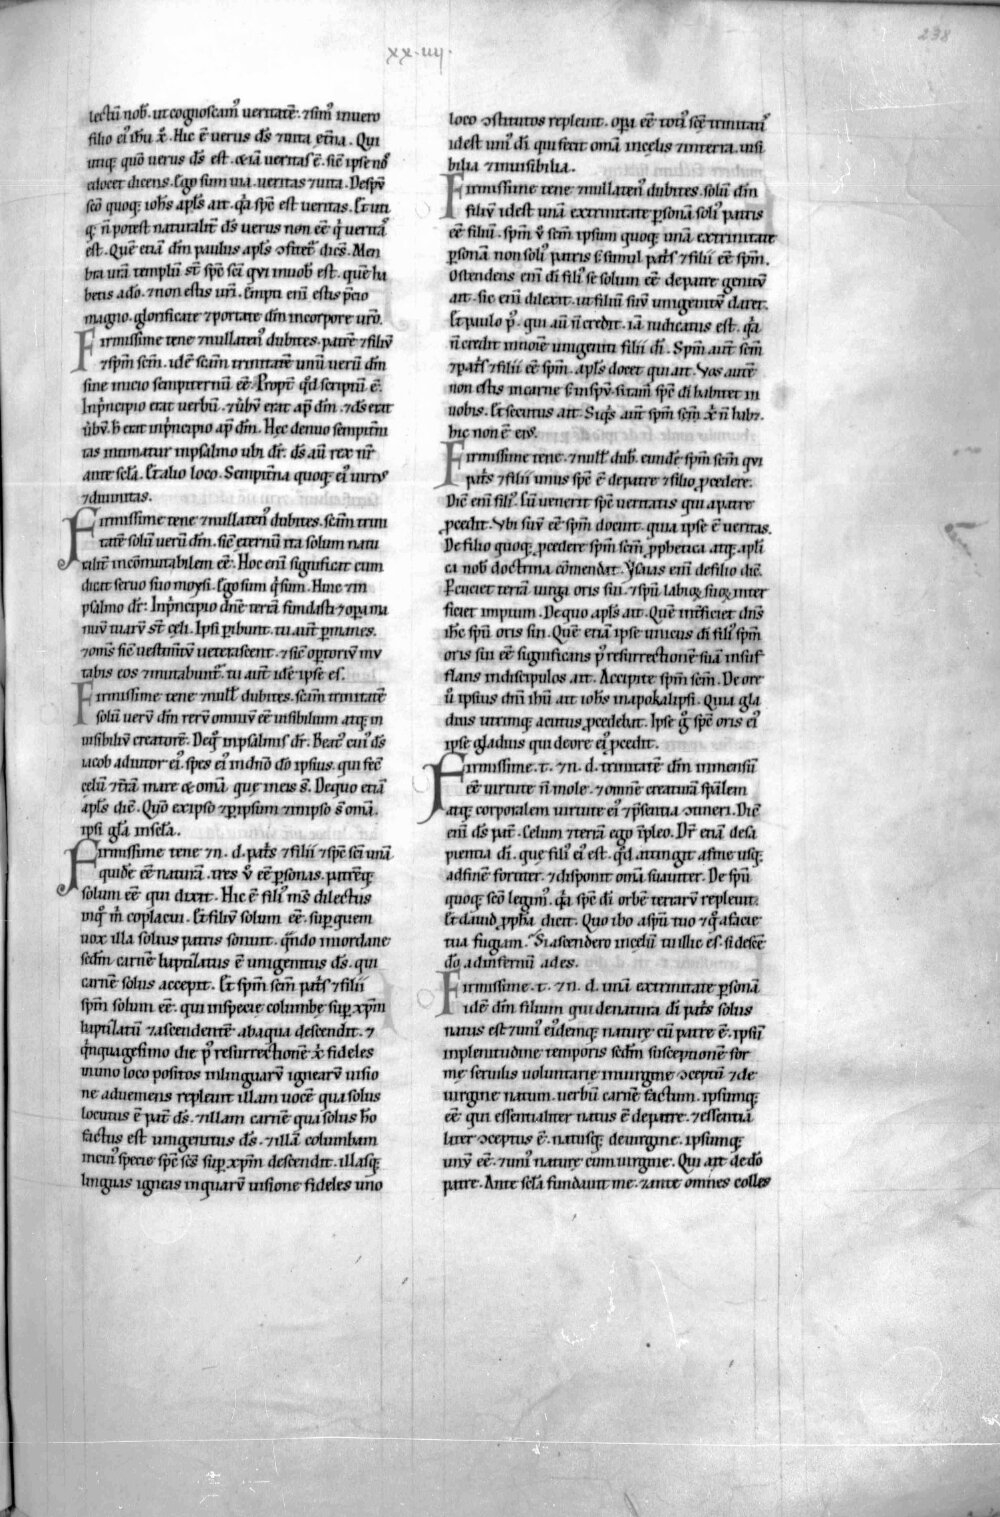 xx·iiij·
238
lectũ nob̃. ut cognoscam᷒ veritatẽ. ⁊ sim᷒ in vero
filio ei᷒ ihũ x̃. Hic ẽ verus d̃s ⁊ vita et̃na. Qui
unq; quõ verus d̃s est. & iã veritas ẽ. sic̃ ipse nos
edocet dicens. Ego sum via. veritas ⁊ vita. De sp̃u
sc̃o quoq; ioh̃s apl̃s ait. q̃a sp̃c est veritas. Et uti
q; ñ potest naturalit̃ d̃s verus non eẽ q̃ verita᷒
est. Quẽ etiã dm̃ paulus apl̃s ɔfitet̃ dic̃s. Mem
bra vr̃a templũ st̃ sp̃c sc̃i qui in vob̃ est. quẽ ha
betis a dõ. ⁊ non estis vr̃i. Empti eni estis p̃cio
magno. glorificate ⁊ portate dm̃ in corpore vr̃o.
Firmissime tene ⁊ nullaten᷒ dubites. patrẽ ⁊ filiũ
⁊ sp̃m sc̃m. idẽ sc̃am trinitatẽ unũ verũ dm̃
sine inicio sempiternũ eẽ. Propt̃ q̃d scriptũ ẽ.
In p̃ncipio erat verbũ. ⁊ v̉bũ erat ap̃ dm̃. ⁊ d̃s erat
v̉bũ. h̃ erat in p̃ncipio ap̃ dm̃. Hęc denuo sempit̃ni
tas intimatur in psalmo ubi dr̃. d̃s aũ rex nr̃
ante sc̃la. Et alio loco. Sempit̃na quoq; ei᷒ virt᷒
⁊ divinitas.
Firmissime tene ⁊ nullaten᷒ dubites. sc̃am trini
tatẽ solũ verũ dm̃. sic̃ eternũ ita solum natu
ralit̃ incõmutabilem eẽ. Hoc eni significat cum
dicit servo suo moysi. Ego sum q̃ sum. Hinc ⁊ in
psalmo dr̃: In p̃ncipio dnẽ terrã fundasti ⁊ opa ma
nuũ tuarũ st̃ cęli. Ipsi p̃ibunt. tu aut̃ p̃manes.
⁊ oms̃ sic̃ vestim̃tũ veterascent. ⁊ sic̃ op̃toriũ mu
tabis eos ⁊ mutabunt᷒. tu aut̃ idẽ ipse es.
Firmissime tene ⁊ null̃ dubites. sc̃am trinitatẽ
solũ verũ dm̃ rerũ omniũ eẽ visibilium atq; in
visibiliũ creatorẽ. De q̃ in psalmis dr̃. Beat᷒ cui᷒ d̃s
iacob adiutor ei᷒. spes ei᷒ in dnõ dõ ipsius. qui fec̃
celũ ⁊ t̃rã mare & om̃a quę in eis s̃. De quo etiã
apl̃s dic̃. Quõ ex ipso ⁊ p̱ ipsum ⁊ in ipso s̃ om̃a.
ipsi gl̃a in sc̃la.
Firmissime tene ⁊ n. d. pat̃s ⁊ filii ⁊ sp̃c sc̃i unã
quidẽ eẽ naturã. tres v̉ eẽ p̱sonas. patrẽq;
solum eẽ qui dixit. Hic ẽ fili᷒ m̃s dilectus
in q̃ m̃ cõplacui. Et filiũ solum eẽ. sup̱ quem
vox illa solius patris sonuit. q̃ndo in iordane
sc̃dm carnẽ baptizatus ẽ unigenitus d̃s. qui
carnẽ solus accepit. Et sp̃m sc̃m pat̃s ⁊ filii
sp̃m solum eẽ. qui in specie columbę sup̱ xp̃m
baptizatũ ⁊ ascendentẽ ab aqua descendit. ⁊
q̃nquagesimo die p᷒ resurrectionẽ x̃ fideles
in uno loco positos in linguarũ ignearũ visio
ne adveniens replevit. illam vocẽ qua solus
locutus ẽ pat̃ d̃s. ⁊ illam carnẽ qua solus hõ
factus est unigenitus d̃s. ⁊ illã columbam
in cui᷒ specie sp̃c sc̃s sup̱ xp̃m descendit. illasq;
linguas igneas in quarũ visione fideles uno
loco ɔstitutos replevit. opa eẽ toti᷒ sc̃ę trinitati᷒
id est uni᷒ d̃i qui fecit om̃a in cęlis ⁊ in terra. visi
bilia ⁊ invisibilia.
Firmissime tene ⁊ nullaten᷒ dubites. solũ dm̃
filiũ id est unã ex trinitate p̱sonã soli᷒ patris
eẽ filiũ. sp̃m v̉ sc̃m ipsum quoq; unã ex trinitate
p̱sonã non soli᷒ patris s; simul pat̃s ⁊ filii eẽ sp̃m.
Ostendens eni d̃i fili᷒ se solum eẽ de patre genitũ
ait. sic eni dilexit. ut filiũ suũ unigenitũ daret.
Et paulo p᷒. qui aũt ñ credit. iã iudicatus est. q̃a
ñ credit in noĩe unigeniti filii d̃i. Sp̃m aut̃ sc̃m
⁊ pat̃s ⁊ filii eẽ sp̃m. apl̃s docet qui ait. Vos autẽ
non estis in carne s; in sp̃u. si tam̃ sp̃c d̃i habitet in
vobis. Et secutus ait. Siq̃s aut̃ sp̃m sc̃m x̃ ñ habꝫ.
hic non ẽ ei᷒s.
Firmissime tene. ⁊ null̃ dub̃. eundẽ sp̃m sc̃m qui
pat̃s ⁊ filii unus sp̃c ẽ de patre ⁊ filio p̱cedere.
Dic̃ eni fili᷒. Cũ venerit sp̃c veritatis qui a patre
p̱cedit. Ubi suũ eẽ sp̃m docuit. quia ipse ẽ veritas.
De filio quoq; p̱cedere sp̃m sc̃m p̱phetica atq; apl̃i
ca nob̃ doctrina cõmendat. Ysaias eni de filio dic̃.
P̱cutiet terrã virga oris sui. ⁊ sp̃u labioꝝ suoꝝ inter
ficiet impium. De quo apl̃s ait. Quẽ int̃ficiet dñs
ih̃c sp̃u oris sui. Quẽ etiã ipse unicus d̃i fili᷒ sp̃m
oris sui eẽ significans p᷒ resurrectionẽ suã insuf
flans in discipulos ait. Accipite sp̃m sc̃m. De ore
v̉ ipsius dnĩ ihũ ait ioh̃s in apokalipsi. Quia gla
dius utrimq; acutus p̱cedebat. Ipse g̃ sp̃c oris ei᷒
ipse gladius qui de ore ei᷒ p̱cedit.
Firmissime. t. ⁊ n. d. trinitatẽ dm̃ inmensũ
eẽ virtute ñ mole. ⁊ omnẽ creaturã sp̃alem
atq; corporalem virtute ei᷒ ⁊ p̃sentia ɔtineri. Dic̃
eni d̃s pat̃. Celum ⁊ terrã ego ĩpleo. Dr̃ etiã de sa
pientia d̃i. que fili᷒ ei᷒ est. q̃d attingit a fine usq;
ad finẽ fortiter. ⁊ disponit om̃a suaviter. De sp̃u
quoq; sc̃o legim᷒. q̃a sp̃c d̃i orbẽ terrarũ replevit.
Et david p̱pħa dicit. Quo ibo a sp̃u tuo ⁊ q̃ a facie
tua fugiam. Si ascendero in cęlũ tu illic es. si descẽ
do ad infernũ ades.
Firmissime. t. ⁊ n. d. unã ex trinitate p̱sonã
idẽ dm̃ filium qui de natura d̃i pat̃s solus
natus est ⁊ uni᷒ eidemq; naturę cũ patre ẽ. ipsũ
in plenitudine temporis sc̃dm susceptionẽ for
mę servilis voluntarie in virgine ɔceptũ ⁊ de
virgine natum. verbũ carnẽ factum. ipsumq;
eẽ qui essentialiter natus ẽ de patre. ⁊ essentia
liter ɔceptus ẽ. natusq; de virgine. ipsumq;
unũ eẽ. ⁊ uni᷒ naturę cum virgine. Qui ait de dõ
patre. Ante sc̃la fundavit me. ⁊ ante omnes colles